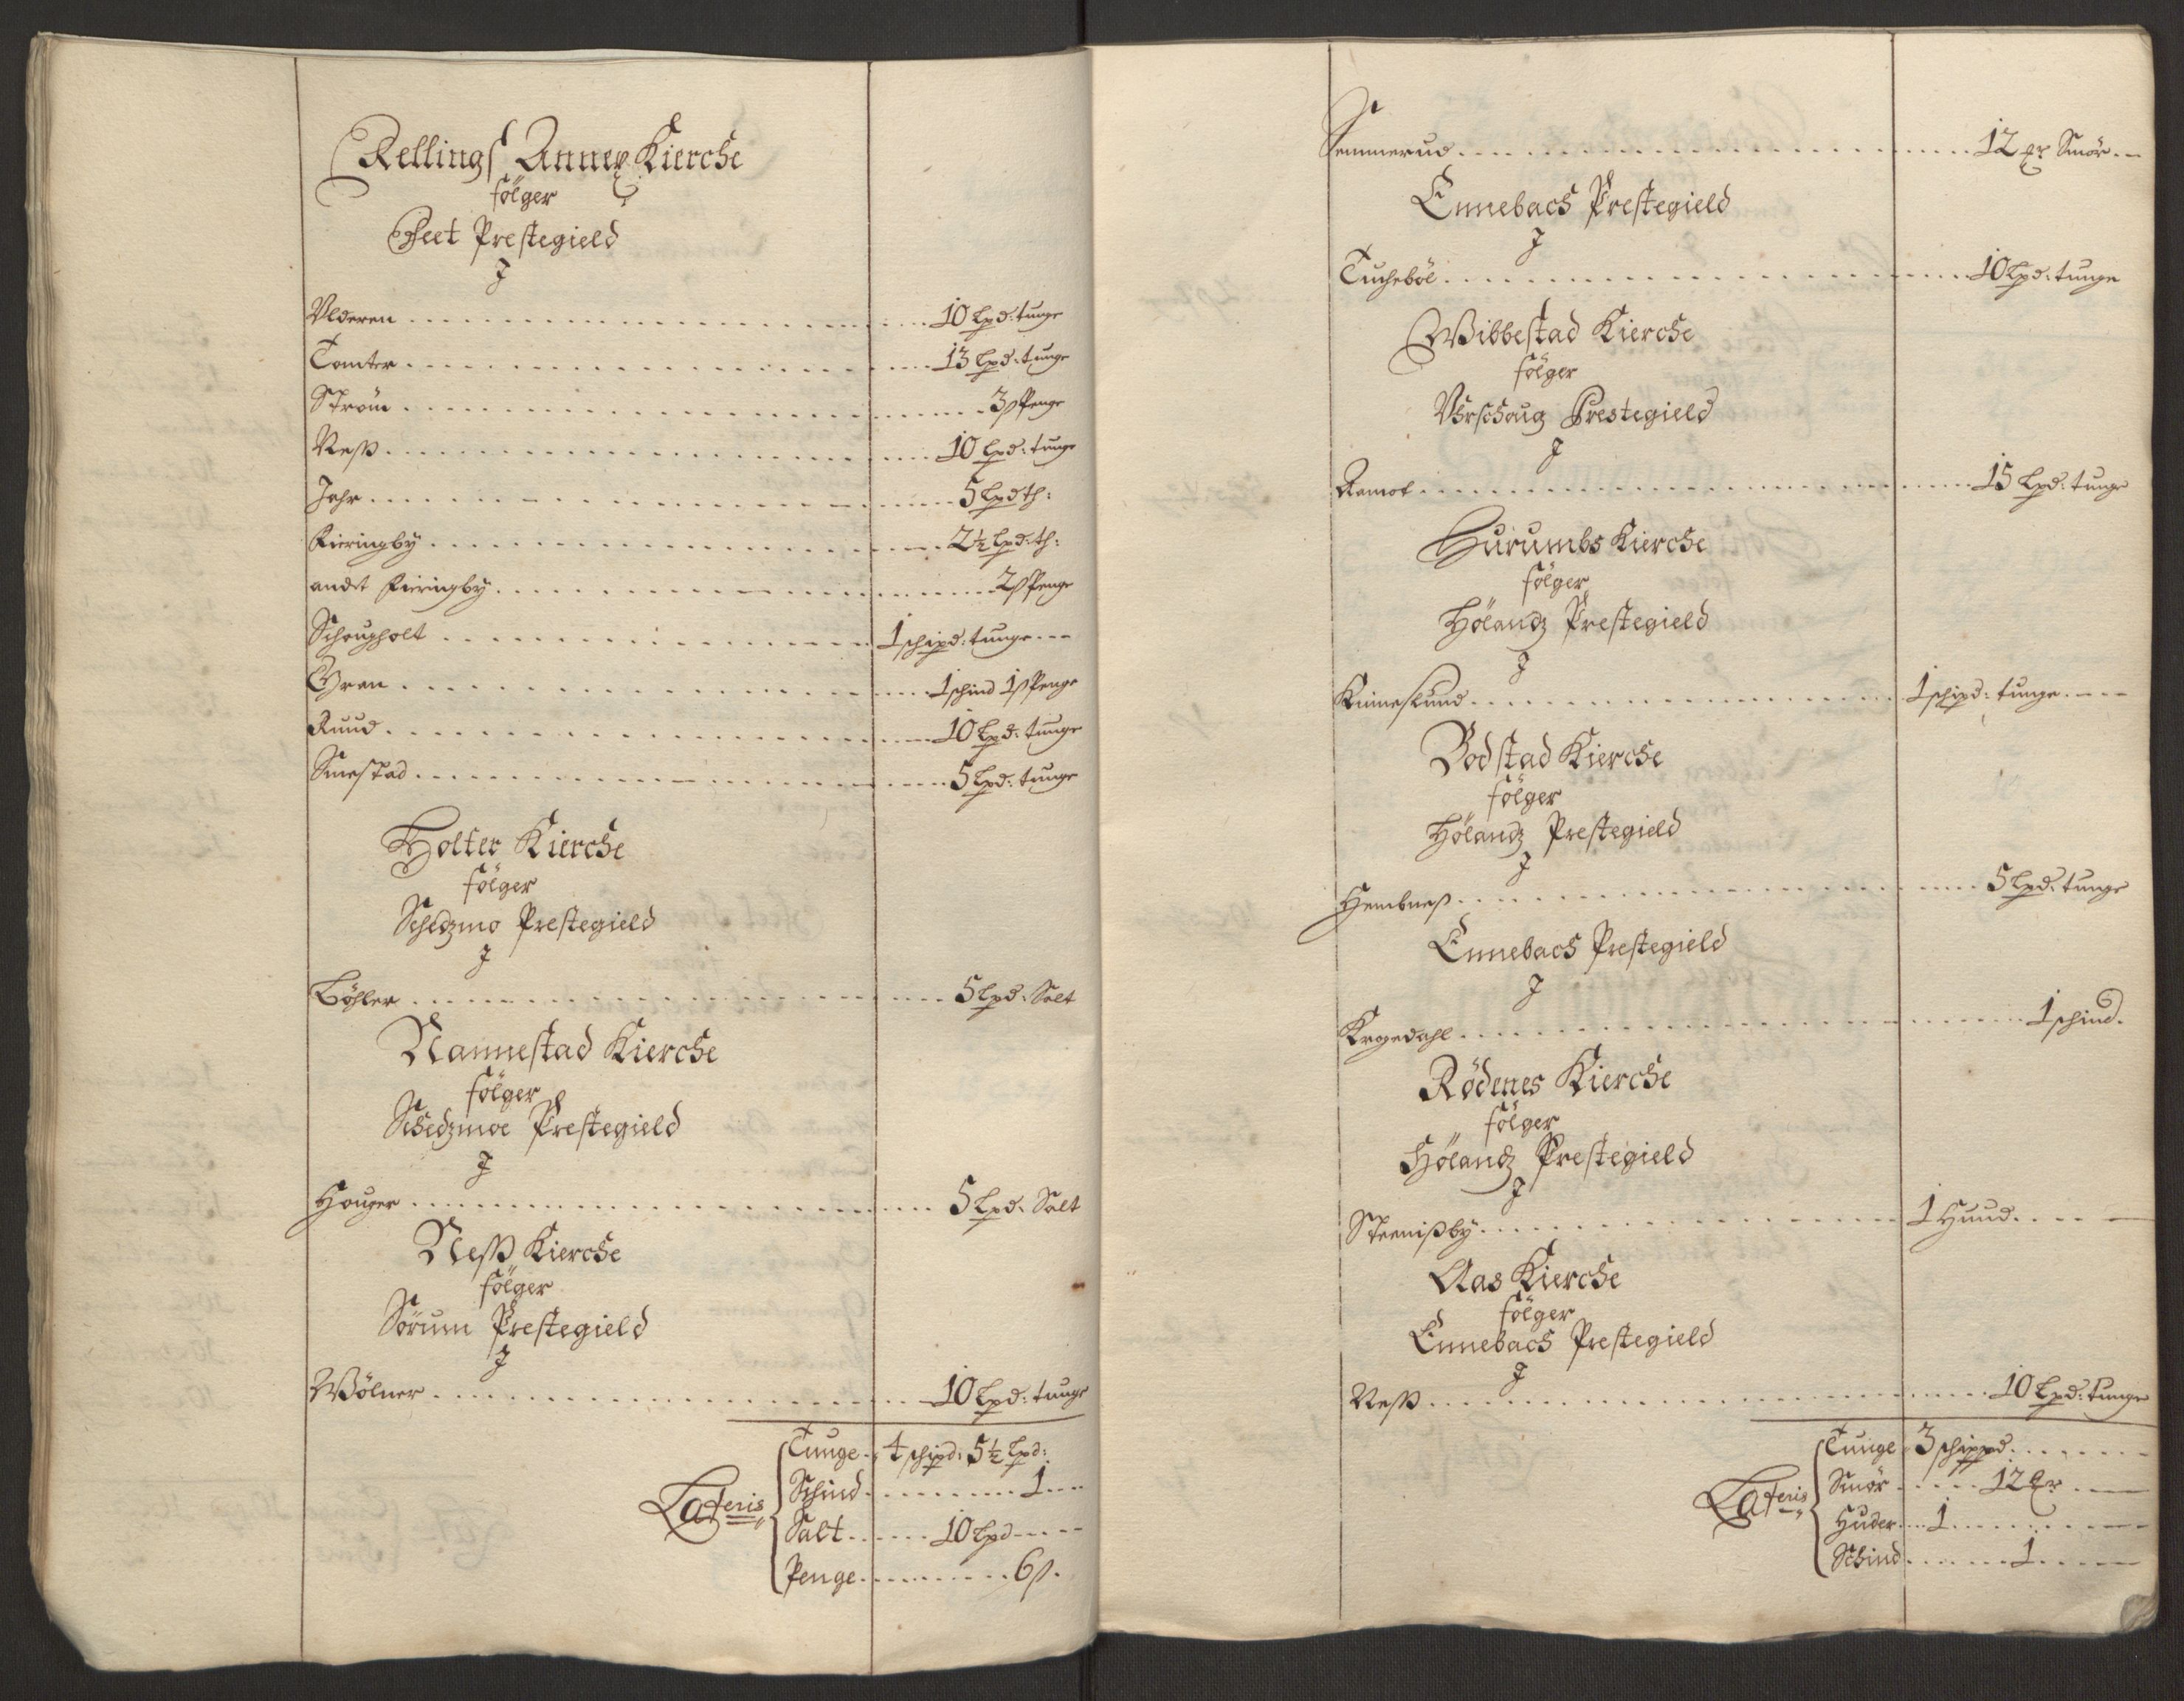 Rellings Annex Kierche
følger
Feet Prestegield
J
Vlderen 10 Lpd: tunge
Tomter 13 Lpd: tunge
Strøm 3 ß Penge
Neß 10 Lpd: tunge
Jahr 5 Lpd th:
Kieringby 2½ Lpd: th:
andet Kieringby 2 ß Penge
Schougholt 1 schipd: tunge
Gran 1 schind 1 ß Penge
Ruud 10 Lpd: tunge
Smestad 5 Lpd: tunge
Holter Kierche
følger
Schedzmo Prestegield
J
Bøhler 5 Lpd: Salt
Nannestad Kierche
følger
Schedzmoe Prestegield
J
Houger 5 Lpd: Salt
Neß Kierche
følger
Sørum Prestegield
J
Wølner 10 Lpd: tunge
Lateris
Tunge 4 schipd: 5½ Lpd:
Schind 1
Salt 10 Lpd
Penge 6 ß.
Semmerud 12 Er Smør
Ennebach Prestegield
J
Tuchebøl 10 Lpd: tunge
Wibbestad Kierche
følger
Vhrschoug Prestegield
J
Ramot 15 Lpd: tunge
Hurumbs Kierche
følger
Hølandz Prestegield
J
Kinneslund 1 schipd: tunge
Bodstad Kierche
følger
Hølandz Prestegield
J
Hembneß 5 Lpd: tunge
Ennebach Prestegield
J
Krogedahl 1 schind.
Rødenes Kierche
følger
Hølandz Prestegield
J
Steenißby 1 Huud
Aas Kierche
følger
Ennebach Prestegield
J
Neß 10 Lpd: tunge
Lateris
Tunge 3 schippd
Smør 12 Er
Huder 1
Schind 1